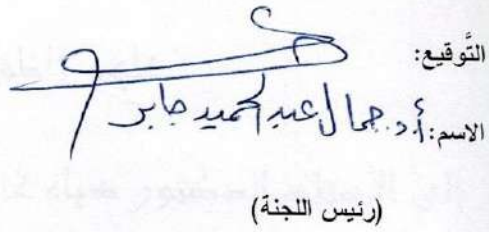 التَّوقيع:
الاسم: أ.د. جمال عبد الحميد جابر
(رئيس اللجنة)